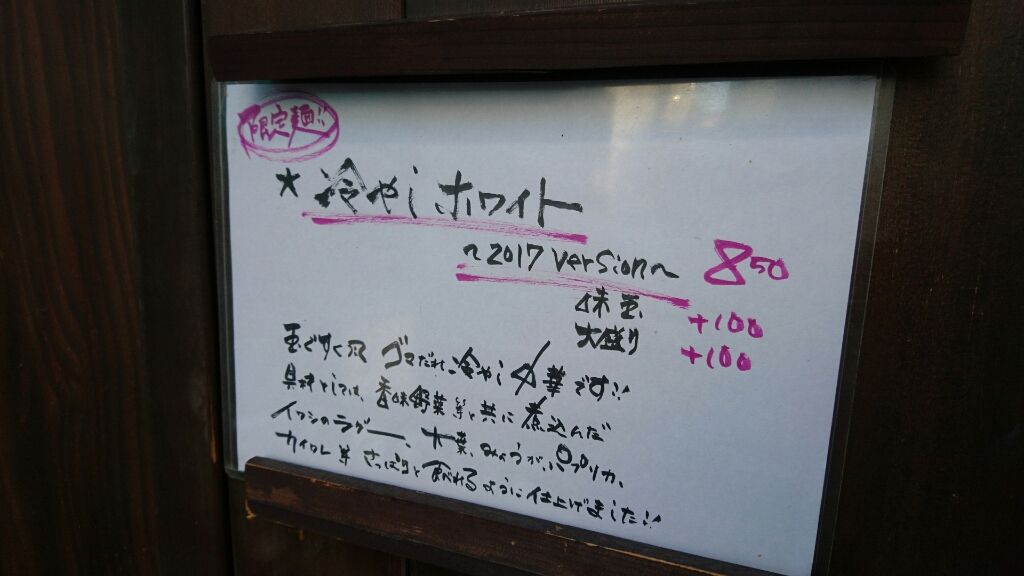 限定麺!!
★冷やしホワイト
~2017 version~ 850
味玉 +100
大盛り +100
ゴマだれ冷やし中華です!!
具材としては、香味野菜等と共に煮込んだ
イワシのラグー、大葉、みょうが、パプリカ、
カイワレ等さっぱりと食べれるように仕上げました!!